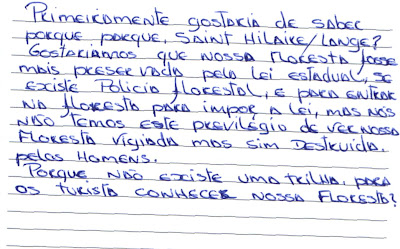 Primeiramente gostaria de saber
porque parque, Saint Hilaire/Lange?
Gostariamos que nossa floresta fosse
mais preservada pela lei estadual, se
existe Policia florestal, e para entrar
na floresta para impor a lei, mas nós
não temos este previlégio de ver nossa
floresta vigiada mas sim destruida.
pelos Homens.
Porque não existe uma trilha, para
os turista conhecer nossa floresta?